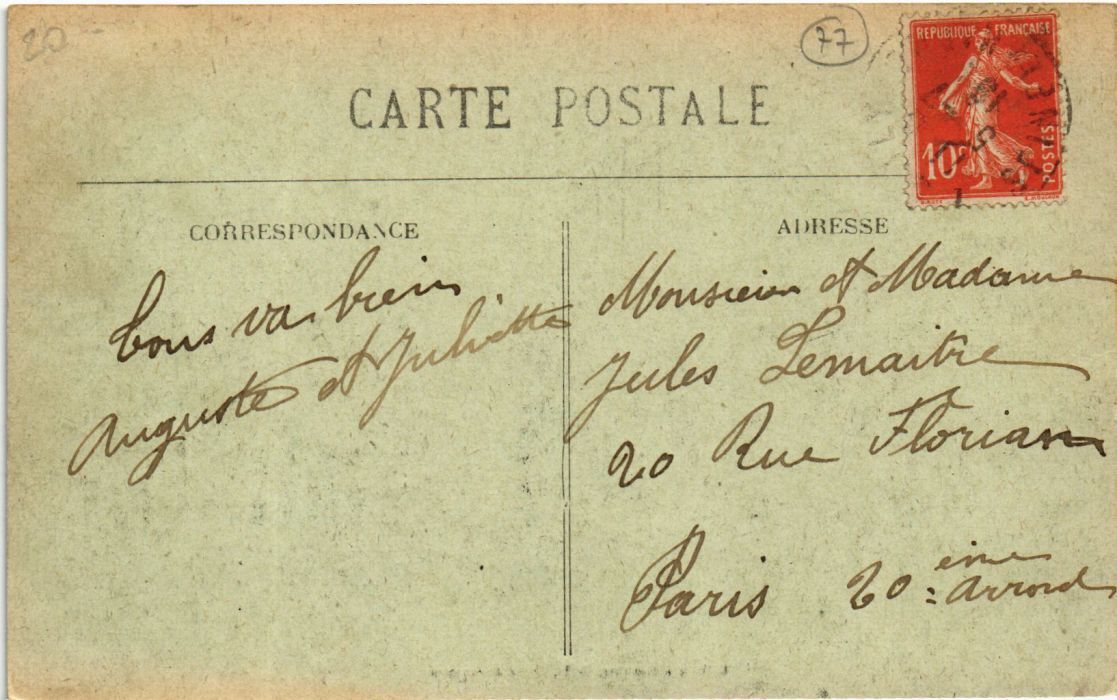 20
77
REPUBLIQUE FRANÇAISE
10c
POSTES
CARTE POSTALE
CORRESPONDANCE
tous va bien
Auguste et Juliette
ADRESSE
Monsieur et Madame
Jules Lemaitre
20 Rue Florian
Paris 20 eme Arrond